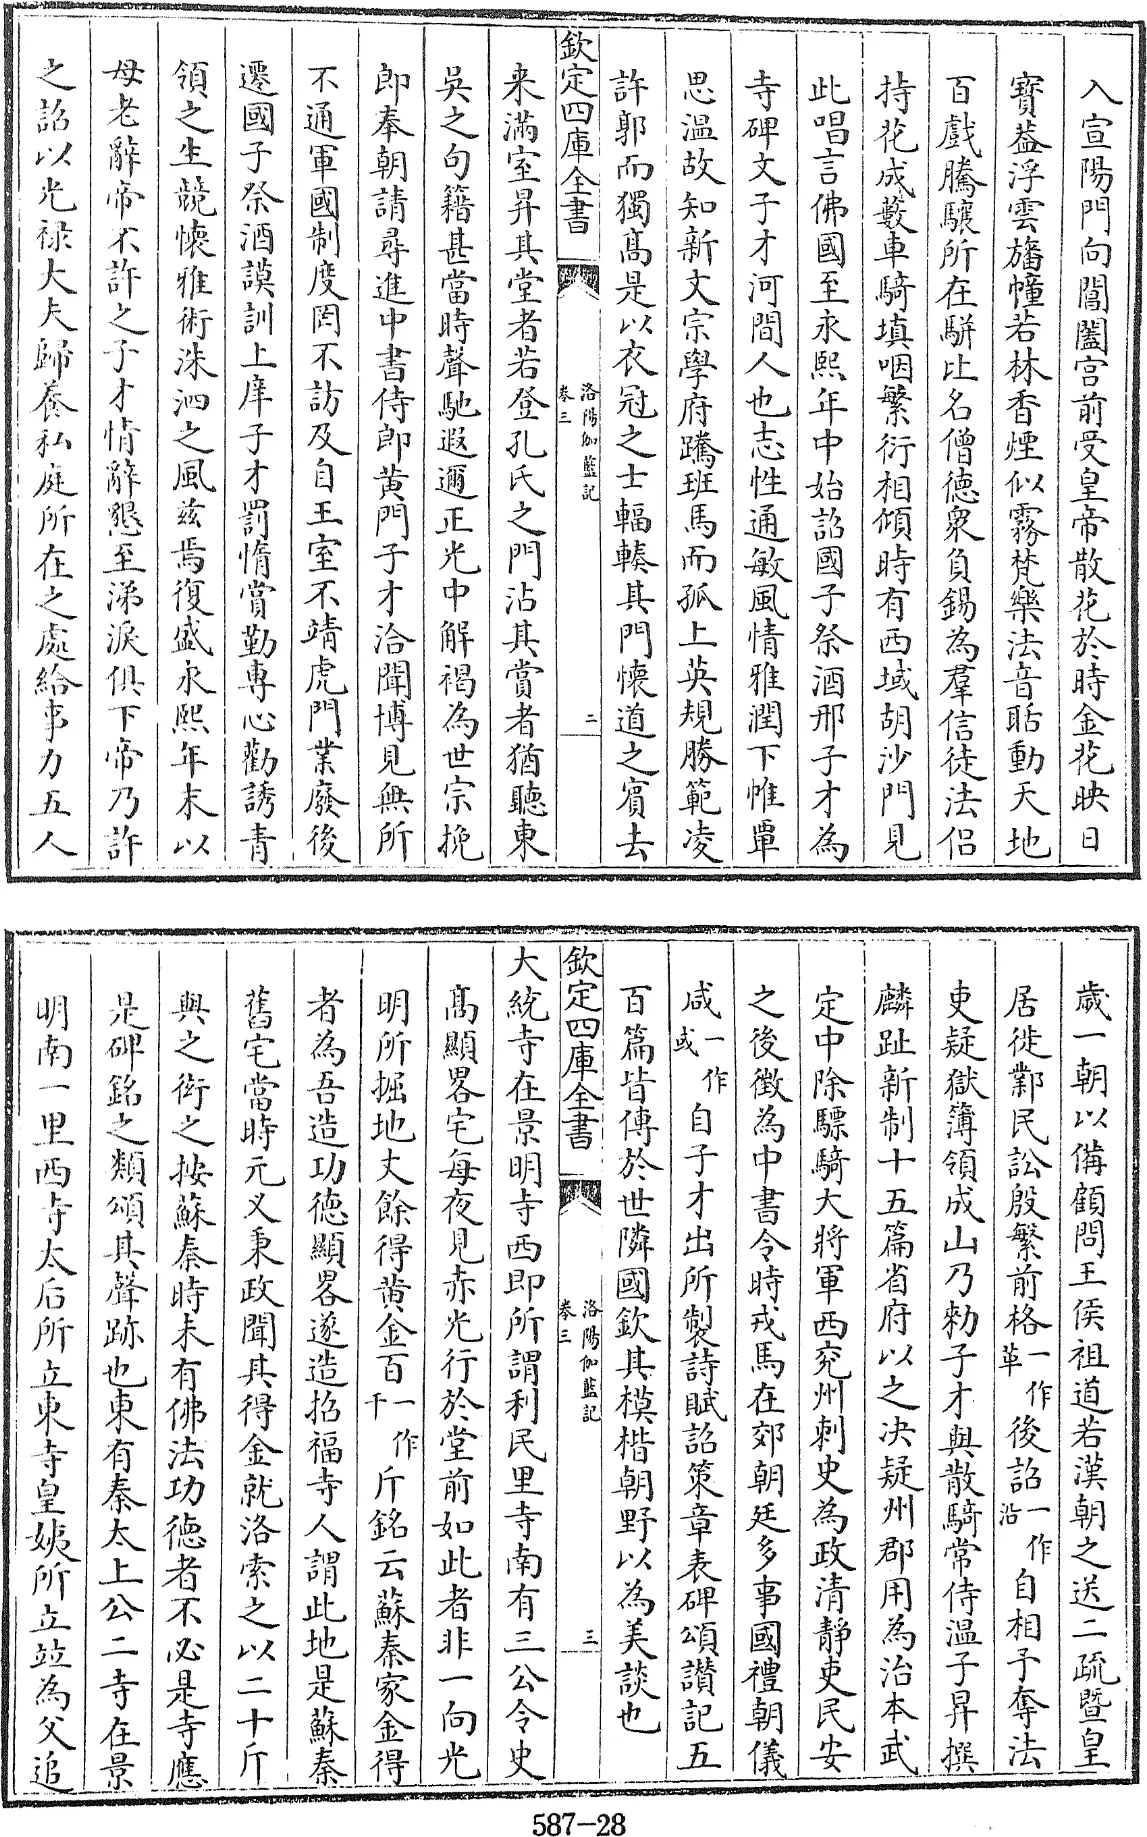 入宣陽門向閶闔宫前受皇帝散花於時金花映日
寳葢浮雲旛幢若林香煙似霧梵樂法音聒動天地
百戲騰驤所在駢比名僧徳衆負錫為羣信徒法侣
持花成藪車騎填咽繁衍相傾時有西域胡沙門見
此唱言佛國至永熙年中始詔國子祭酒邢子才為
寺碑文子才河間人也志性通敏風情雅潤下帷覃
思温故知新文宗學府躋班馬而孤上英規勝範凌
許郭而獨髙是以衣冠之士輻輳其門懷道之賓去
欽定四庫全書
洛陽伽藍記
卷三
二
来滿室昇其堂者若登孔氏之門沾其賞者猶聽東
吳之句籍甚當時聲馳遐邇正光中解褐為世宗挽
郎奉朝請尋進中書侍郎黄門子才洽聞博見無所
不通軍國制度罔不訪及自王室不靖虎門業廢後
遷國子祭酒謨訓上庠子才罰惰賞勤專心勸誘青
領之生競懐雅術洙泗之風兹焉復盛永熙年末以
母老辭帝不許之子才情辭懇至涕淚俱下帝乃許
之詔以光禄大夫歸養私庭所在之處給事力五人
歳一朝以備顧問王侯祖道若漢朝之送二疏暨皇
居徙鄴民訟殷繁前格一作革後詔一作沿自相予奪法
吏疑獄簿領成山乃勅子才與散騎常侍温子昇撰
麟趾新制十五篇省府以之决疑州郡用為治本武
定中除驃騎大將軍西兖州刺史為政清靜吏民安
之後徴為中書令時戎馬在郊朝廷多事國禮朝儀
咸一作或自子才出所製詩賦詔策章表碑頌讃記五
百篇皆傳於世隣國欽其模楷朝野以為美談也
欽定四庫全書
洛陽伽藍記
卷三
三
大統寺在景明寺西即所謂利民里寺南有三公令史
髙顯畧宅每夜見赤光行於堂前如此者非一向光
明所掘地丈餘得黄金百一作千斤銘云蘇秦家金得
者為吾造功徳顯畧遂造招福寺人謂此地是蘇秦
舊宅當時元乂秉政聞其得金就洛索之以二十斤
與之衒之按蘇秦時未有佛法功徳者不必是寺應
是碑銘之類頌其聲跡也東有秦太上公二寺在景
明南一里西寺太后所立東寺皇姨所立竝為父追
587-28